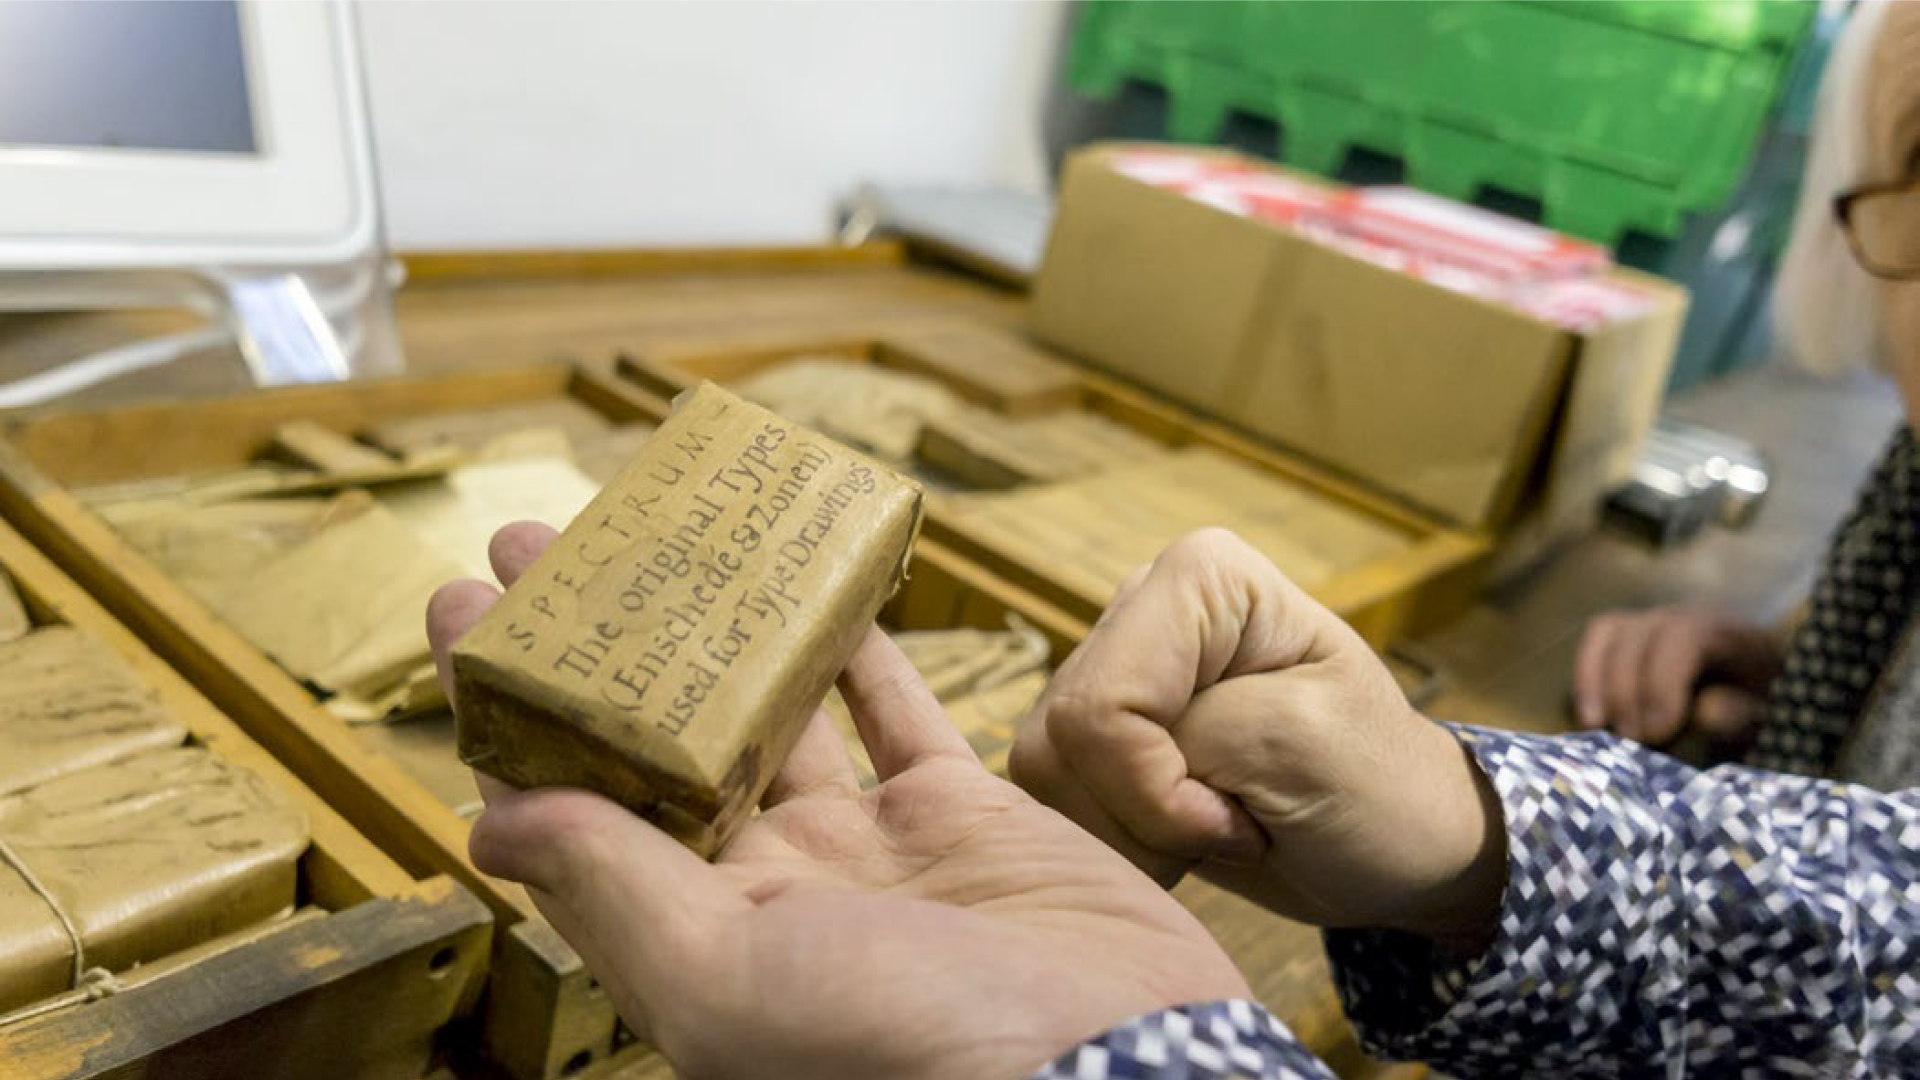 SPECTRUM
The original Types
(Enschedé & Zonen)
used for Type Drawings